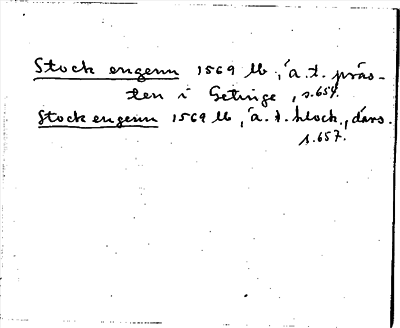 Stock engenn 1569 lb, ä. t. präs-
ten i Getinge, s.654.
Stockengenn 1569 lb, ä. t. klock., därs.
s.657.